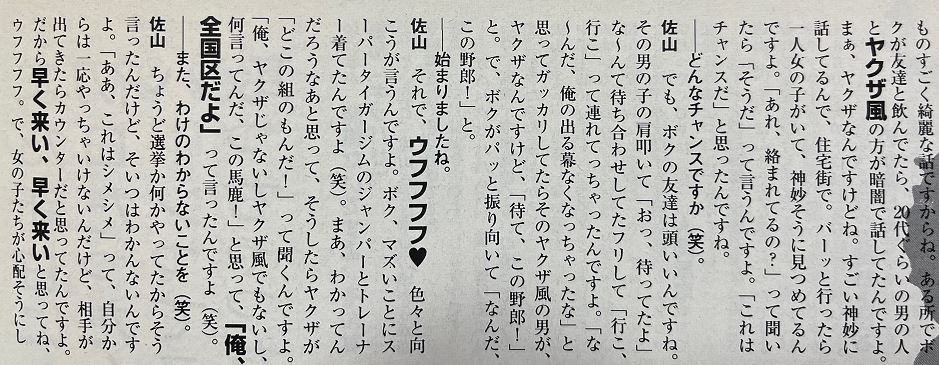 ものすごく綺麗な話ですからね。ある所でボ
クが友達と飲んでたら、20代ぐらいの男の人
とヤクザ風の方が暗闇で話してたんですよ。
まぁ、ヤクザなんですけどね。すごい神妙に
話してるんで、住宅街で。パーッと行ったら
一人女の子がいて、神妙そうに見つめてるん
ですよ。「あれ、絡まれてるの?」って聞い
たら「そうだ」って言うんですよ。「これは
チャンスだ」と思ったんですね。
――どんなチャンスですか(笑)。
佐山 でも、ボクの友達は頭いいんですね。
その男の子の肩叩いて「おっ、待ってたよ」
な〜んて待ち合わせしてたフリして「行こ、
行こ」って連れてっちゃったんですよ。「な
〜んだ、俺の出る幕なくなっちゃったな」と
思ってガッカリしてたらそのヤクザ風の男が、
ヤクザなんですけど、「待て、この野郎!」
と。で、ボクがパッと振り向いて「なんだ、
この野郎!」と。
――始まりましたね。
佐山 それで、ウフフフフ♥ 色々と向
こうが言うんですよ。ボク、マズいことにス
ーパータイガージムのジャンパーとトレーナ
ー着てたんですよ(笑)。まあ、わかってん
だろうなあと思って、そうしたらヤクザが
「どこの組のもんだ!」って聞くんですよ。
「俺、ヤクザじゃないしヤクザ風でもないし、
何言ってんだ、この馬鹿!」と思って、「俺、
全国区だよ」って言ったんですよ(笑)。
――また、わけのわからないことを(笑)。
佐山 ちょうど選挙か何かやってたからそう
言ったんだけど、そいつはわかんないんです
よ。「ああ、これはシメシメ」って、自分か
らは一応やっちゃいけないんだけど、相手が
出てきたらカウンターだと思ってたんですよ。
だから早く来い、早く来いと思っててね、
ウフフフフ。で、女の子たちが心配そうにし